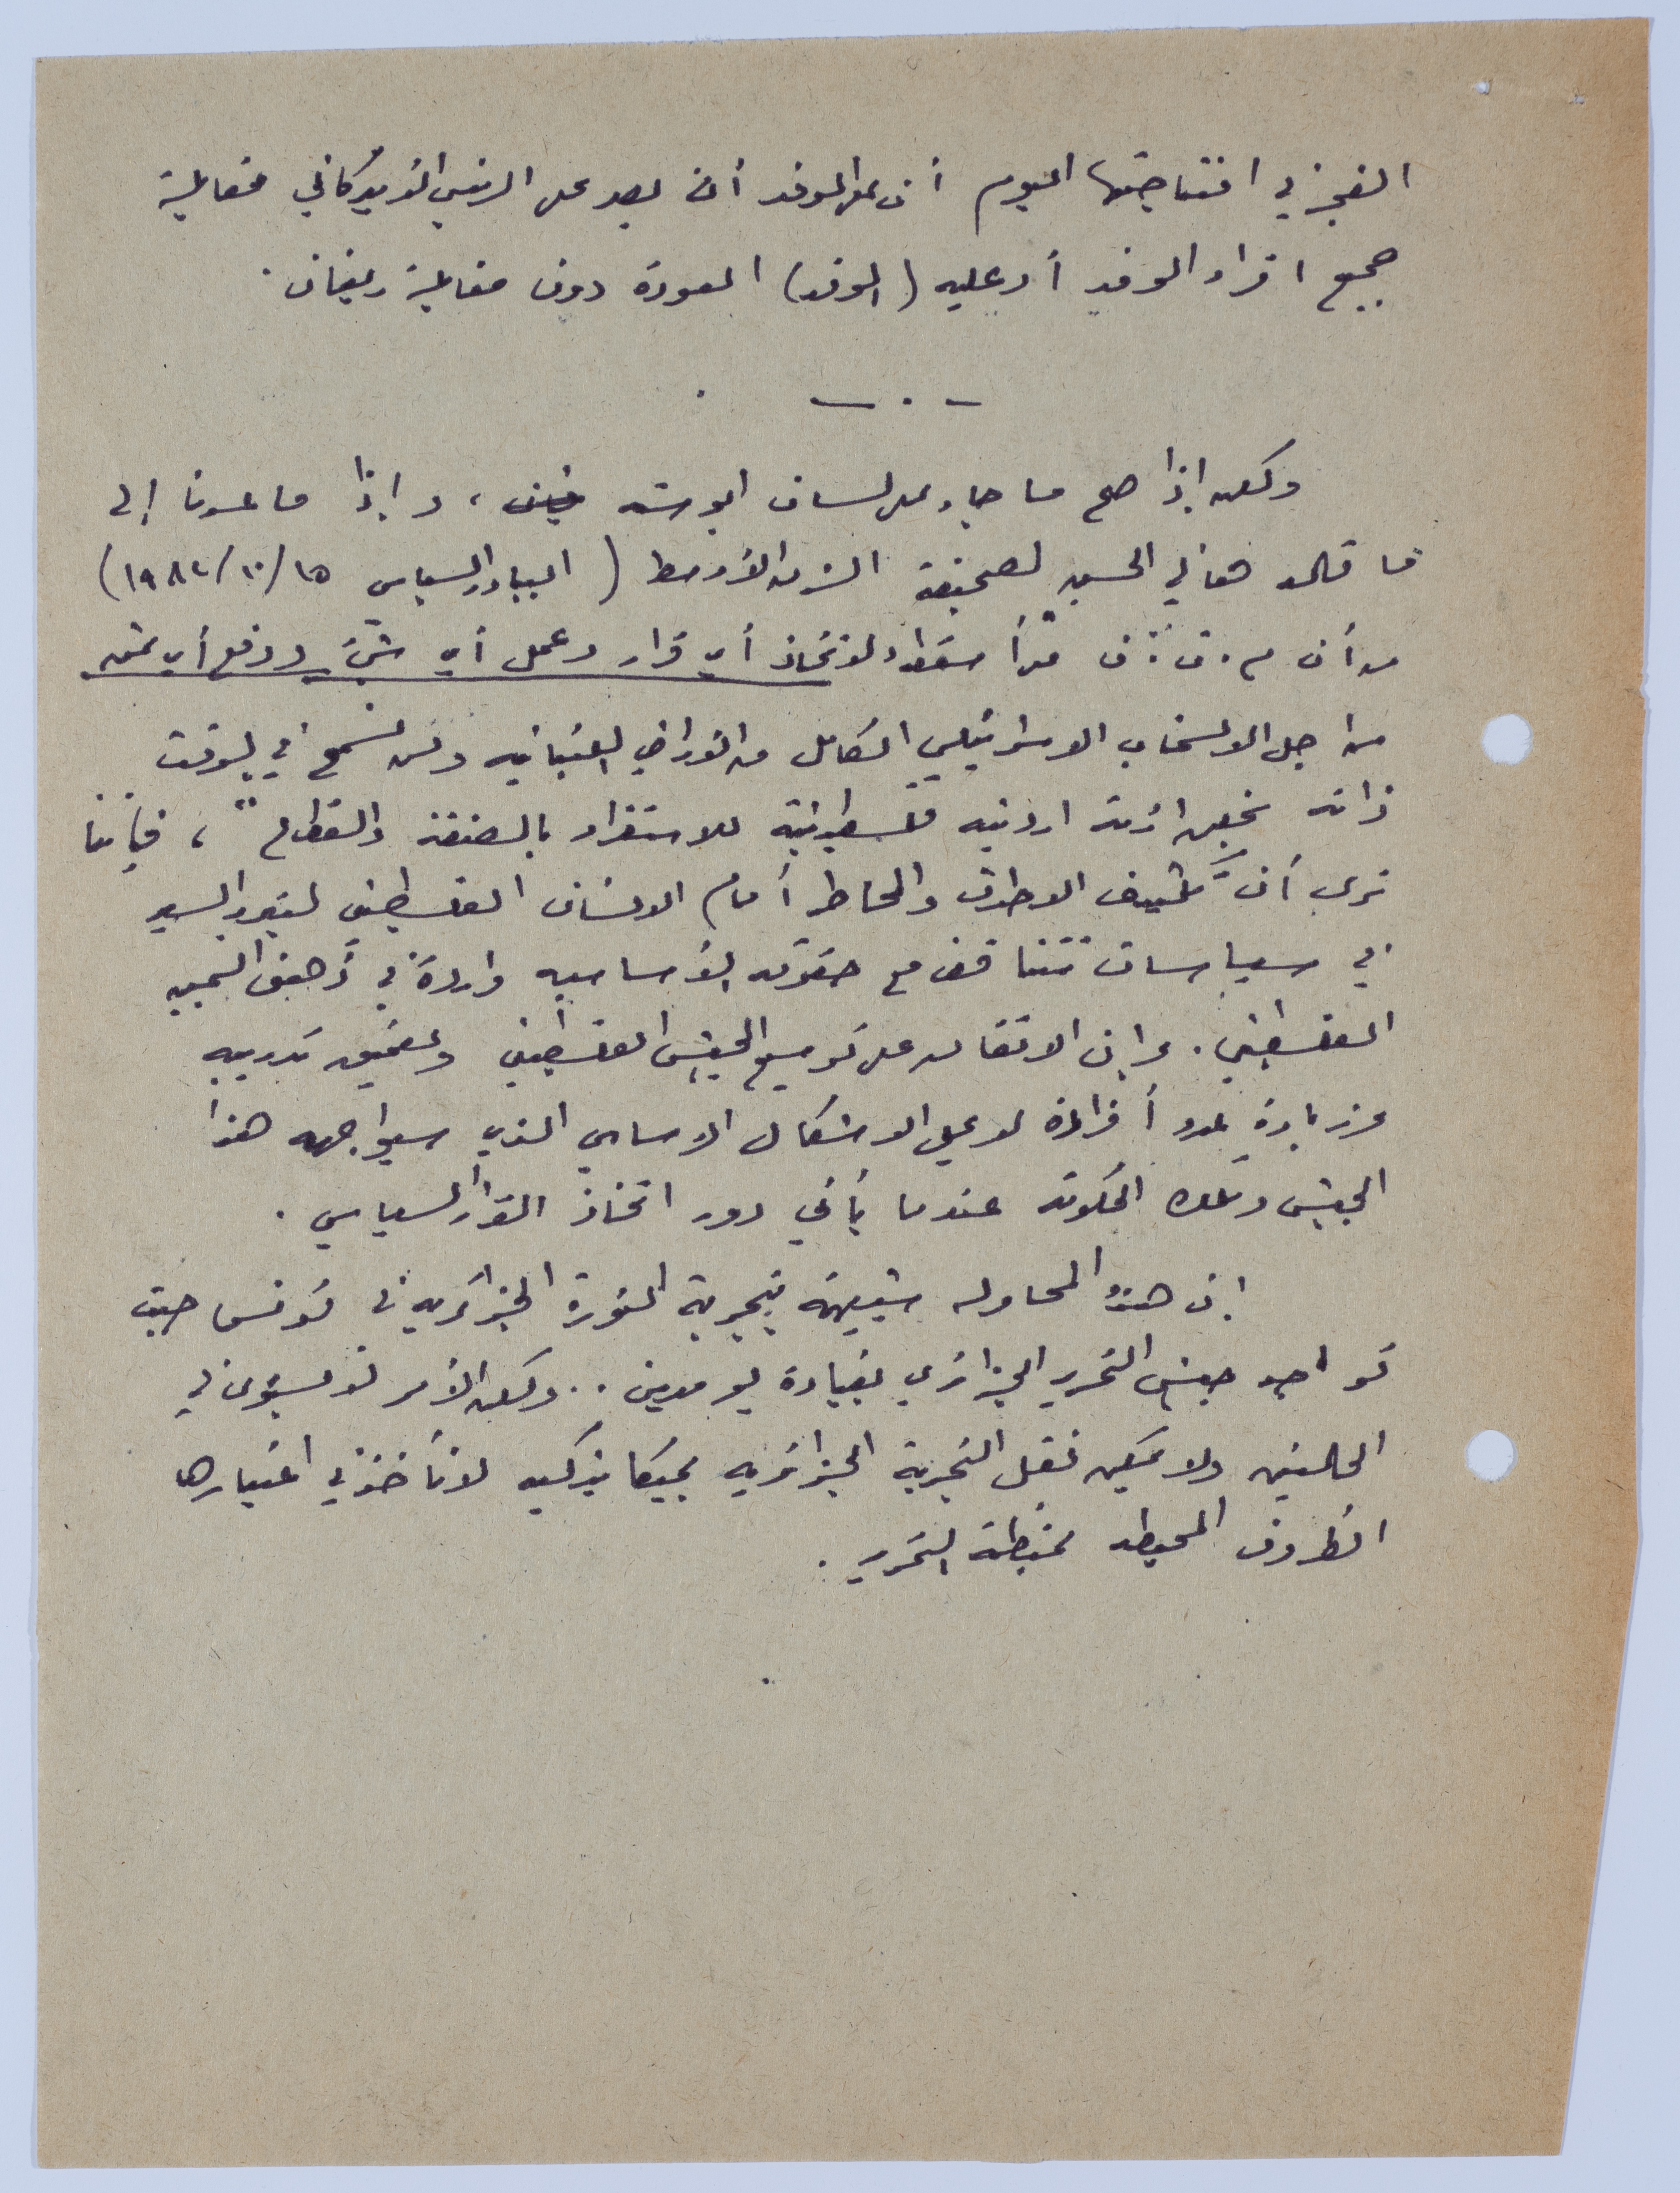 الفجر في افتتاحيتها اليوم أن على الوفد أن يصر على الرئيس الأمريكاني مقابلة
جميع افراد الوفد أو عليه (الوفد) العودة دون مقابلة ريغان.
- . -
ولكن إذا صح ما جاء على لسان ابو ، و إذا ما عدنا إلى
ما قاله هاني الحسن لصحيفة الشرق الأوسط (البيادر السياسي ١٥/١٠/١٩٨٢)
من أن م.ت.ف لاتخاذ أي قرار وعمل أي شيء ودفع أي ثمن
من اجل الانسحاب الاسرائيلي الكامل من الأراضي اللبنانية ولن نسمح في الوقت
ذاته اردنيه فلسطينية للاستفراد بالضفة والقطاع"، فإننا
نرى أن تكثيف الاطواق والمخاطر أمام الانسان الفلسطيني السير
في سياسات تتناقض مع حقوقه الأساسيه واردة في ذهن
الفلسطيني. وإن الاتفاق على توسيع الجيش الفلسطيني وتعميق تدريبه
وزيادة عدد أفراده لا يحل الاشكال الاساسي الذي سيواجهه هذا
الجيش وتلك الحكومة عندما يأتي دور اتخاذ القرار السياسي.
إن هذه المحاوله شبيهة بتجربة الثورة الجزائريه في تونس حيث
تواجد جيش التحرير الجزائري بقيادة بومدين.. ولكن الأمر لا يستوى في
الحالتين ولا يمكن نقل التجربة الجزائريه بميكانيكيه لا تأخذ في اعتبارها
الظروف المحيطه بمنظمة التحرير.